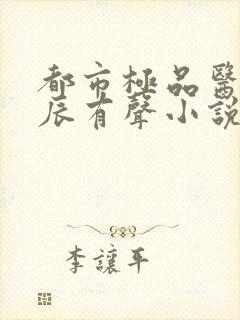 都市極品醫
辰有聲小說
李讓平